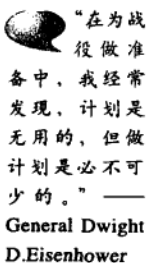 “在为战
役做准
备中，我经常
发现，计划是
无用的，但做
计划是必不可
少的。” ——
General Dwight
D.Eisenhower